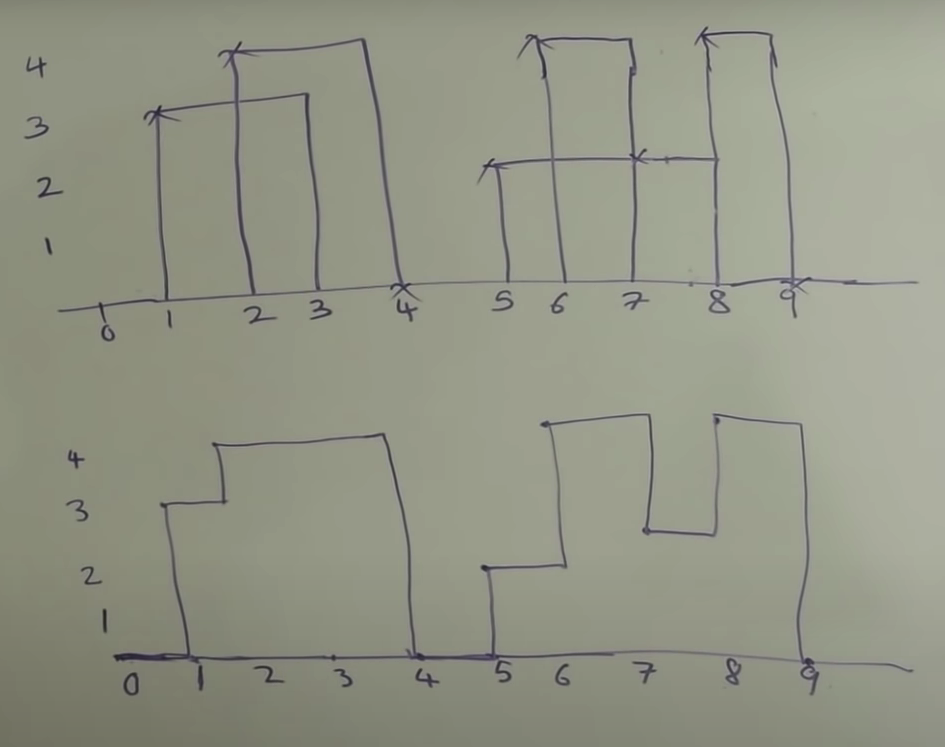 4
3
2
1
0 1 2 3 4 5 6 7 8 9
4
3
2
1
0 1 2 3 4 5 6 7 8 9